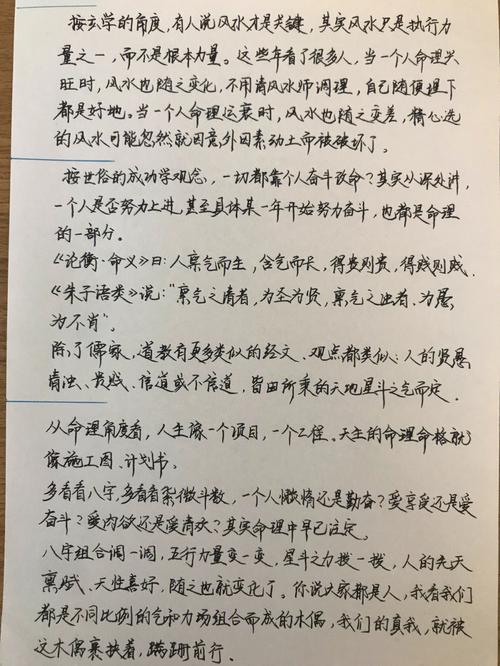 按玄学的角度，有人说风水才是关键，其实风水只是执行力
量之一，而不是根本力量。这些年看了很多人，当一个人命理兴
旺时，风水也随之变化，不用请风水师调理，自己随便埋下
都是好地。当一个人命理运衰时，风水也随之变差，精心选
的风水可能忽然就因意外因素动土而被破坏了。
按世俗的成功学观念，一切都靠个人奋斗改命？其实从深处讲，
一个人是否努力上进，甚至具体某一年开始努力奋斗，也都是命理
的一部分。
《论衡·命义》曰：人禀气而生，含气而长，得贵则贵，得贱则贱。
《朱子语类》说："禀气之清者，为圣为贤，禀气之浊者，为愚，
为不肖"。
除了儒家，道教有更多类似的经文，观点都类似：人的贤愚
清浊、贵贱、信道或不信道，皆由所秉的天地星斗之气而定。
从命理角度看，人生像一个项目，一个工程。天生的命理命格就
像施工图、计划书。
多看看八字，多看看紫微斗数，一个人懒惰还是勤奋？爱享受还是爱
奋斗？爱肉欲还是爱清欢？其实命理中早已注定。
八字组合调一调，五行力量变一变，星斗之力拨一拨，人的先天
禀赋、天性喜好，随之也就变化了。你说大家都是人，我看我们
都是不同比例的气和力场组合而成的木偶，我们的真我，就被
这木偶裹挟着，蹒跚前行。